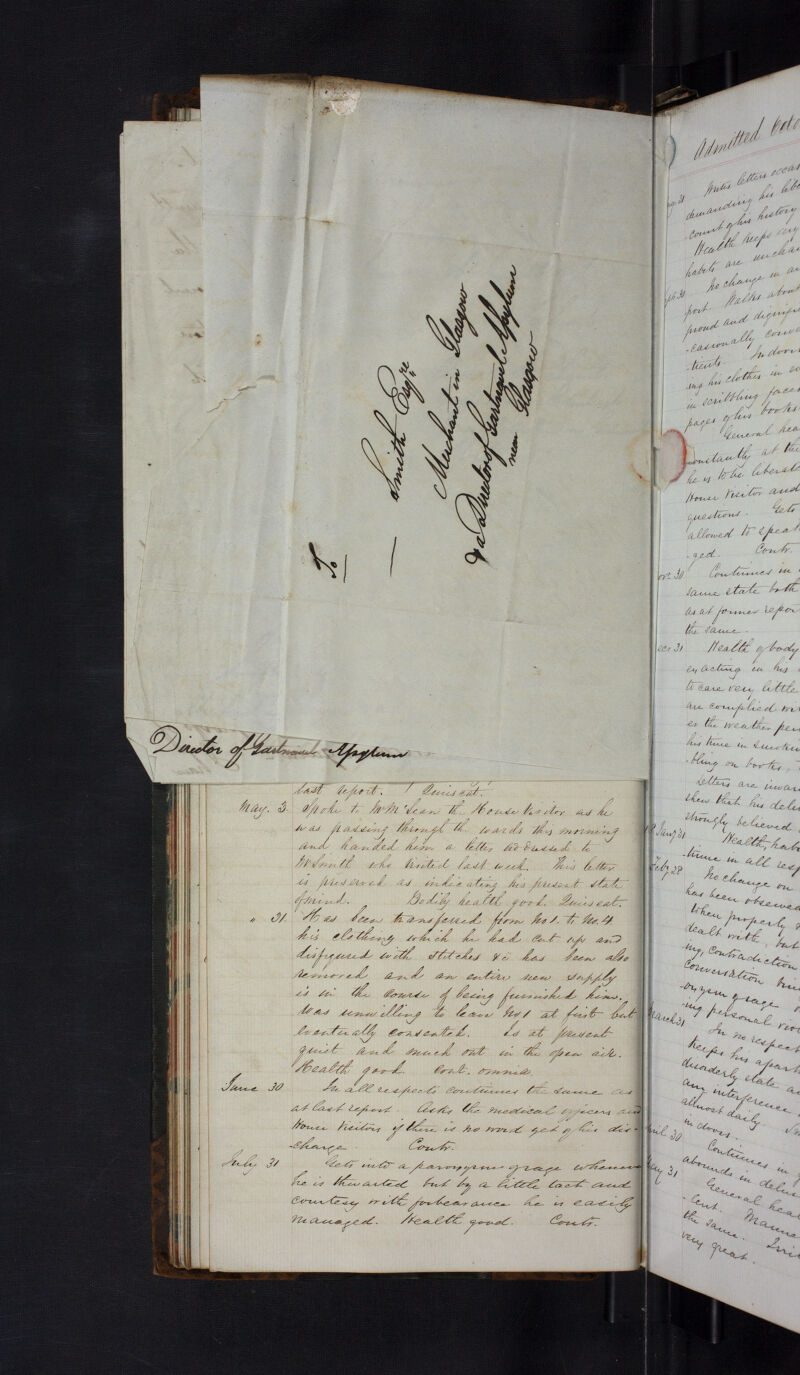 To
Smith Esqre
Merchant in Glasgow
& a Director of Gartnavel Asylum
near Glasgow
Director of Gartnavel Asylum
last report. Quiescat.
May. 3 Spoke to Mr McLean the House Visitor as he
was passing through the wards this morning
and handed him a letter addressed to
Mr Smith who visited last week. This letter
is preserved as indicating his present state
of mind. Bodily health good. Quiescat.
" 31 Has been transferred from No 1. to No. 4
his clothing which he had cut up and
disfigured with stitches &c has been also
removed and an entire new supply
is in the course of being furnished him.
Was unwilling to leave No 1 at first but
eventually consented. Is at present
quiet and much out in the open air.
Health good Cont. omnia
June 30 In all respects continues the same as
at last report. Asks the medical officers and
House Visitors if there is no word yet of his dis-
-charge. Contr.
July 31 Gets into a paroxysm of rage whenever
he is thwarted but by a little tact and
courtesy with forbearance he is easily
managed. Health good. Contr.
Admitted Octo
31 Writes letters occas
demanding his libe
count of his history
Health keeps
habits are uncha
31 No change in
port Walks about
proud and digni
-casionally conve
-tients. Indoors
ing his clothes in
in scribbling faces
pages of his books
General hea
constantly at the
he is to be liberat
House Visitor and
questions. Gets
allowed to speak
-ged. Contr.
30 Continues in
same state both
as at former repor
the same
31 Health of body
exacting in his
to care very little
are complied wi
as the weather per
his time in smokin
-bling on books,
Letters are
shew that his delu
strongly believed
Jany 31 Health, hab
-tinue in all resp
Feby 28 No change on
has been observed
when properly
dealt with, but
-ing, contradiction
conversation
-oxysm of rage
-ing personal viol
March 31 In no respect
Keeps his apart
disorderly state
any interference
almost daily.
indoors.
April 30 Continues in
abounds in delus
May 31 General heal
-lent. Manne
the same.
very great.